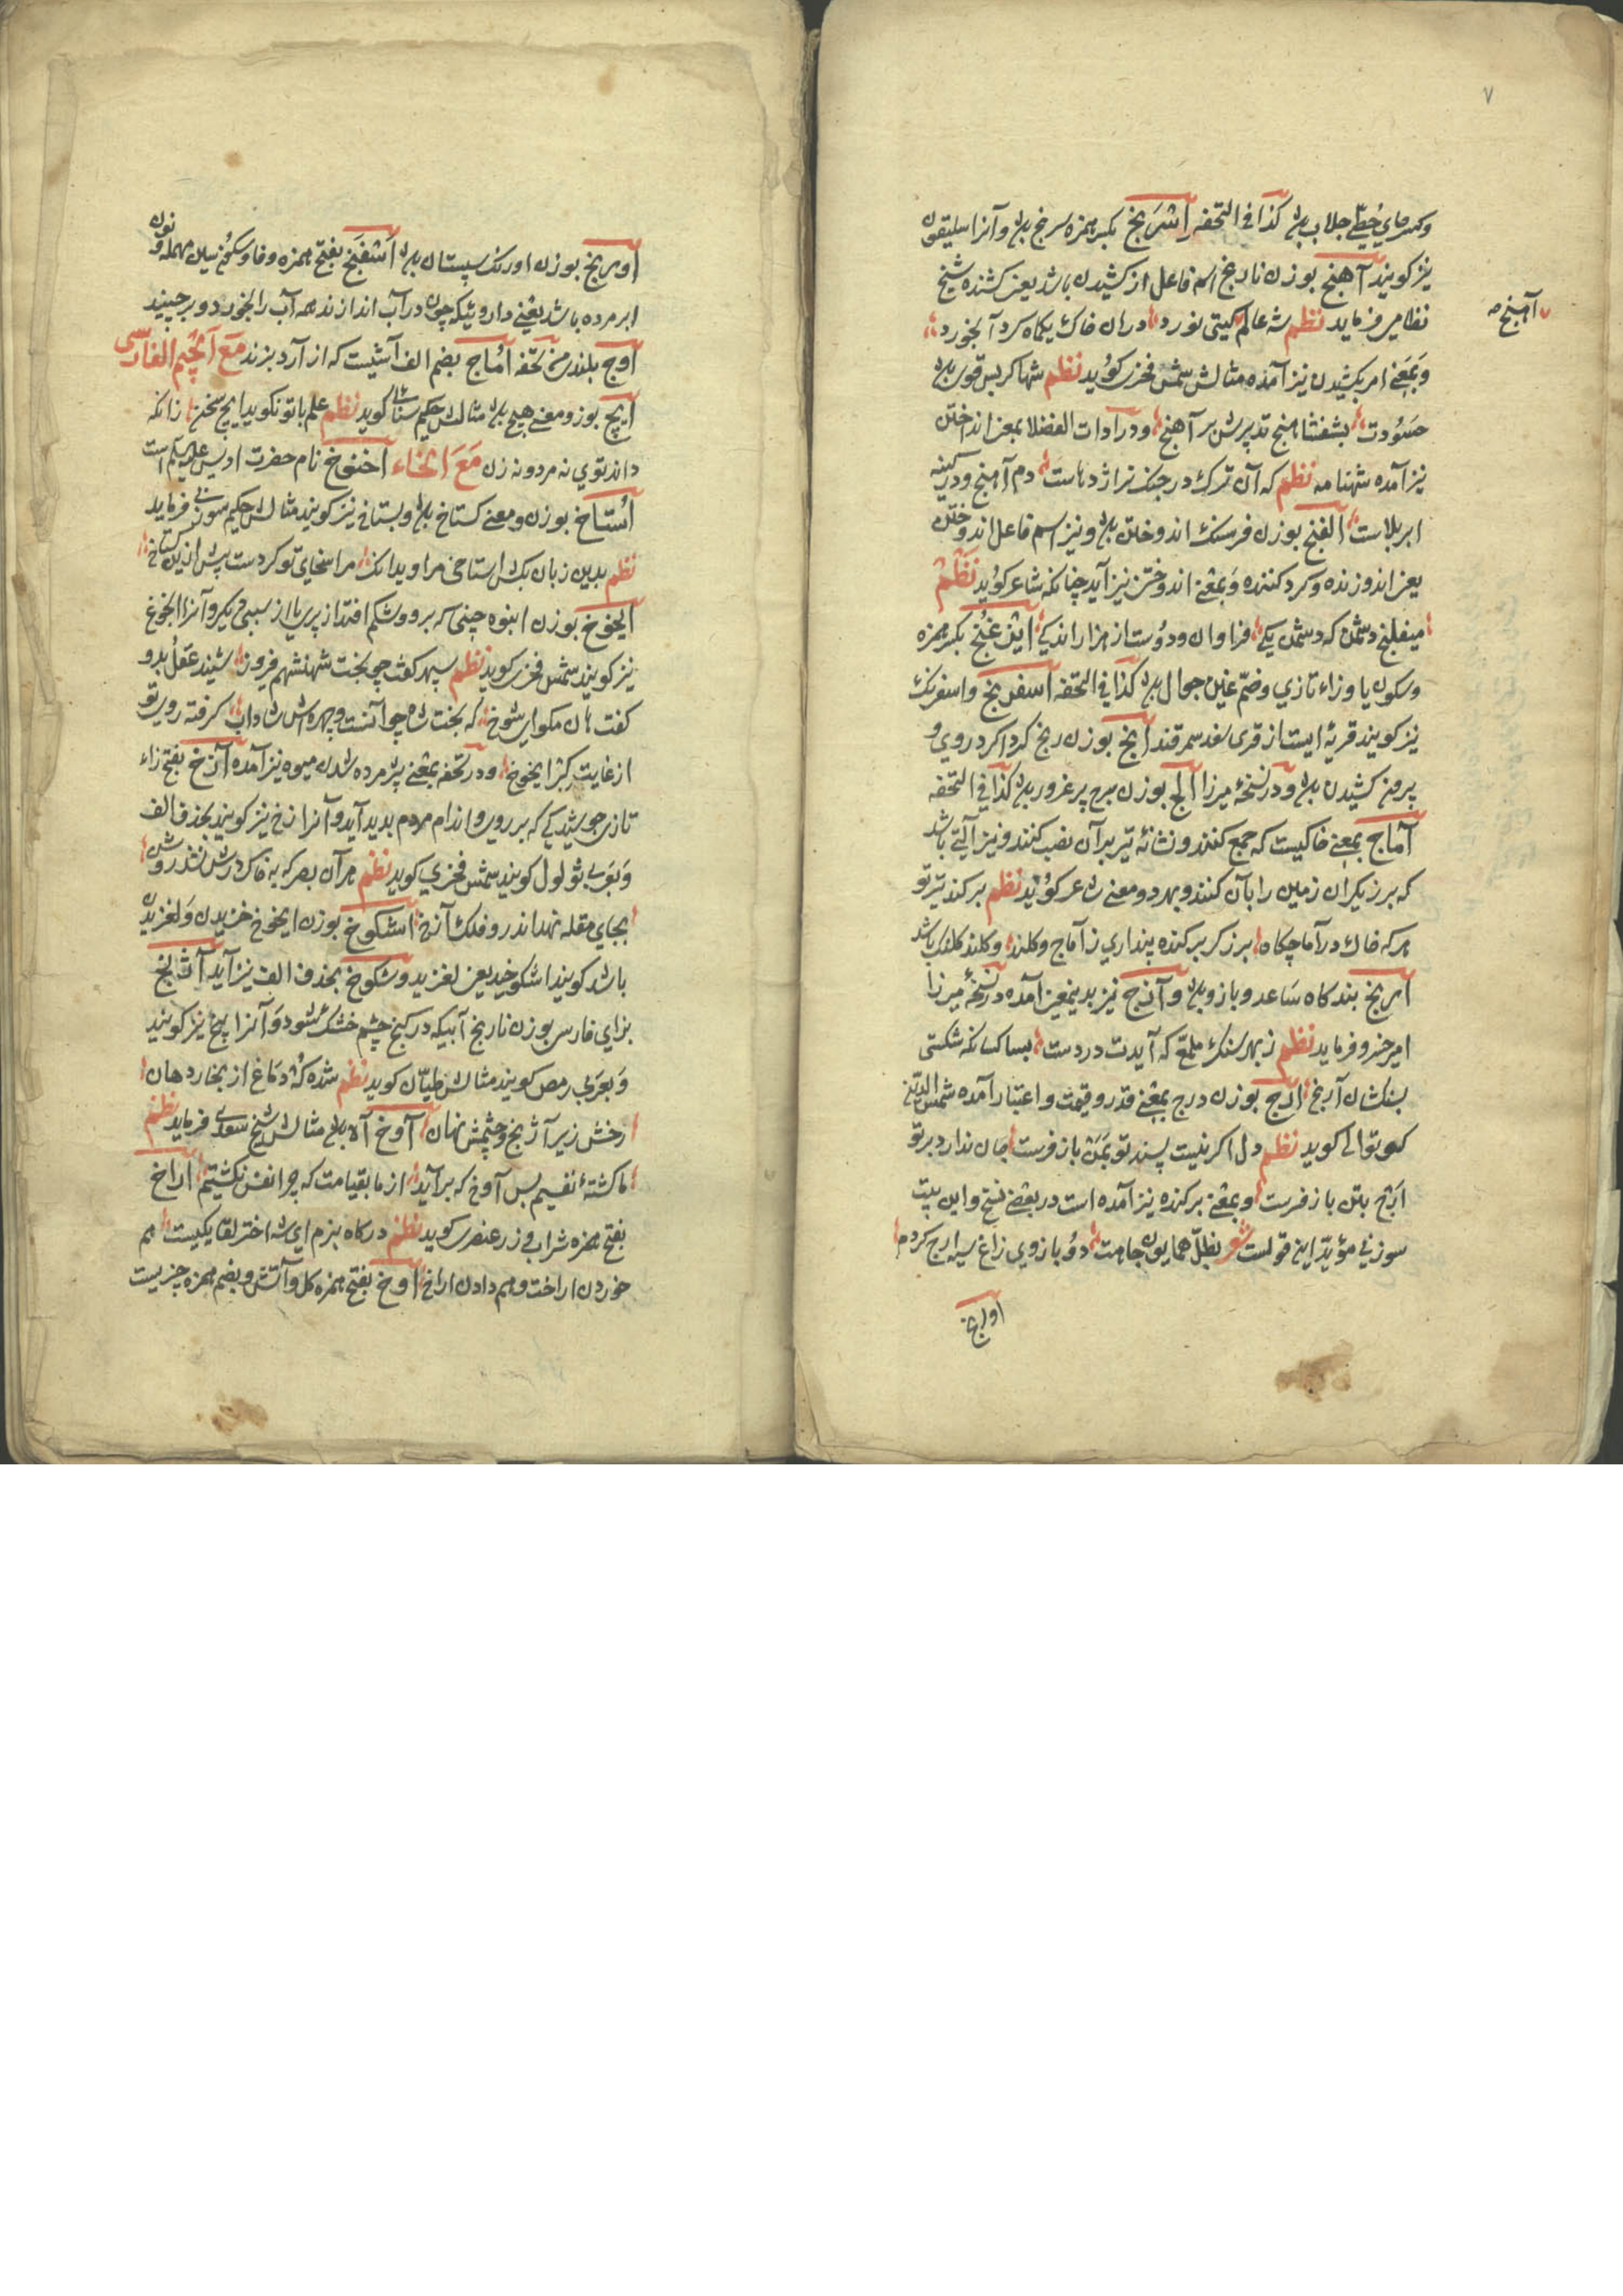 ۷
وکسر حای حطی جلاب باشد کذا فی التحفه اشرنج بکسر همزه سرنج باشد و آنرا سلیقون
نیز کویند آهنج بوزن نارنج اسم فاعل از کشیدن باشد یعنی کشنده شیخ
آهنج
نظامی فرماید نظم شه عالم کیتی نورد در ان خاک یکماه کرد آبخورد
وبمعنی امر بکشیدن نیز آمده مثالش شمس فخری کوید نظم شها کر بس قوی باشد
حسودت بشفشاهنج تدبیرش بر آهنج ودر ادات الفضلا بمعنی انداختن
نیز آمده شهنامه نظم که آن ترک در جنک نر اژدهاست دم آهنج ودر کینه
ابر بلاست الفنج بوزن فرسنک اندوختن باشد ونیز اسم فاعل اندوختن
یعنی اندوزنده وکرد کننده وبمعنی اندوختن نیز آید چنانکه شاعر کوید نظم
میفلنج دشمن که دشمن یکی فراوان ودوست از هزار اندکی ایزغنج بکسر همزه
وسکون یا وزاء تازی وضم غین جوال باشد کذا فی التحفه اسفرنج واسفرنک
نیز کویند قریه ایست از قری سغد سمرقند انج بوزن رنج کرداکرد روی و
بیرون کشیدن باشد ودر نسخه میرزا الج بوزن برج پر غرور باشد کذا فی التحفه
آماج بمعنی خاکیست که جمع کنند ونشانه تیر بر آن نصب کنند ونیز آلتی باشد
که برزیکران زمین را بآن کنند وبهر دو معنی شاعر کوید نظم بر کند تیر تو
هر که خاک در آماجکاه برزکر بر کنده پنداری ز آماج وکلند وکلند کلنک باشد
آرنج بندکاه ساعد وبازو باشد وآرنج نیز بدینمعنی آمده در نسخه میرزا
امیر خسرو فرماید نظم ز بهر سنک ملمع که آیدت در دست بسا کسانکه شکستی
بسنکشان آرنج ارج بوزن درج بمعنی قدر وقیمت واعتبار آمده شمس الدین
کوتوالی کوید نظم دل اکر نیست پسند تو بمن باز فرست جان ندارد بر تو
ارج بتن باز فرست وبمعنی برکنده نیز آمده است در بعضی نسخ واین بیت
سوزنی مؤید این قولست شعر بظل همایون جامت دو بازوی زاغ سیه ارج کردم
اورنج
اورنج بوزن اورنک سپستان باشد اشفنج بفتح همزه وفا وسکون سین مهمله ونون
ابر مرده باشد یعنی داروئیکه چون در آب اندازند همه آب را بخورد وبرچیند
اوج بلندی من تحفه اماج بضم الف آشیست که از آرد بزند مع الجیم الفارسی
ایچ بوز ومعنی هیچ باشد مثالش حکیم سنائی کوید نظم علم با تو نکوید ایچ سخن زانکه
داند توی نه مرد ونه زن مع الخاء اخنوخ نام حضرت ادریس علیه السلام است
استاخ بوزن ومعنی کستاخ باشد وبستاخ نیز کویند مثالش حکیم سوزنی فرماید
نظم بدین زبان استاخی مرا ویدانک مرا سخای تو کردست پیش ازین کستاخ
ایخوخ بوزن انبوه چینی که بر رو وشکم افتد از پری یا از سببی دیکر وآنرا انجوغ
نیز کویند شمس فخری کوید نظم سپهر کفت چو بخت شهنشهم فیروز شنید عقل بدو
کفت هان مکو ای شوخ که بخت شاه جوانست وچهره اش شاداب کرفته روی تو
از غایت کبر ایخوخ ودر تحفه بمعنی پژمرده شدن میوه نیز آمده آزخ بفتح زاء
تازی جوشیدکی که بر روی واندام مردم پدید آید وآنرا زخ نیز کویند بحذف الف
وبعربی ثؤلول کویند شمس فخری کوید نظم هر آن بصر که به خاک درش نشد روشن
بجای مقله نهد اندر و فلک آزخ اشکوخ بوزن ایخوخ خزیدن ولغزیدن
باشد کویند اشکوخید یعنی لغزید وشکوخ بحذف الف نیز آید آژنخ
بزای فارسی بوزن نارنج آبیکه در کنج چشم خشک شود وآنرا پیخ نیز کویند
وبعربی رمص کویند مثالش طیان کوید نظم شده کژ دماغ از بخار دهان
رخش زیر آژنخ وچشمش نهان آوخ آه باشد مثالش شیخ سعدی فرماید نظم
ما کشته نفسیم بس آوخ که برآید از ما بقیامت که چرا نفس نکشتیم اراخ
بفتح همزه شراب وزر عنصری کوید نظم درکاه بزم ای شه اختر لقا یکیست هم
خوردن اراخت وهم دادن اراخ اوخ بفتح همزه کل وآتش وبضم همزه چیزیست